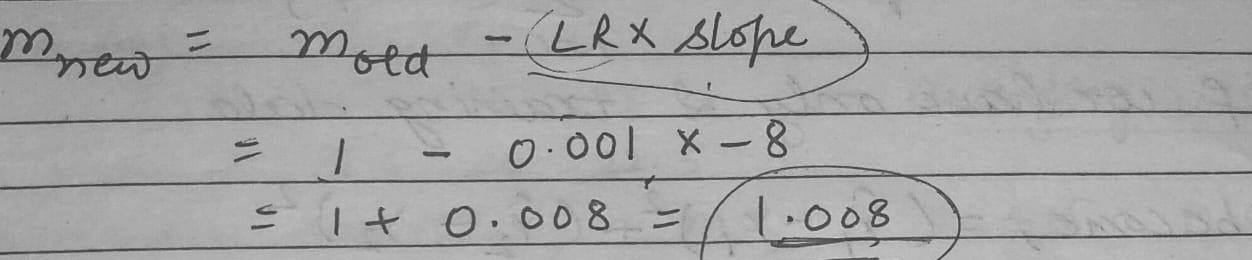 m new = m old - (LR x slope)
= 1 - 0.001 x -8
= 1 + 0.008 = 1.008